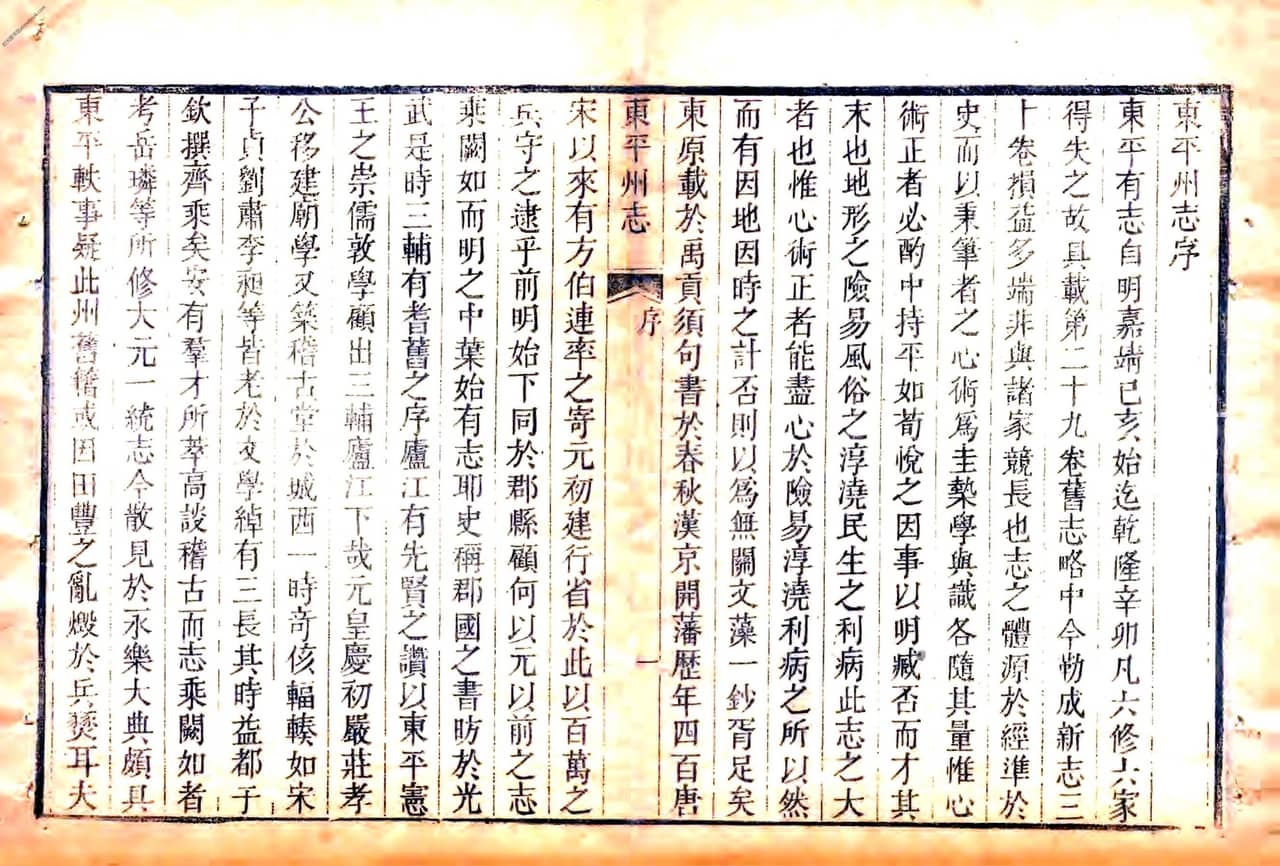 東平州志序
東平有志自明嘉靖己亥始迄乾隆辛卯凡六修六家
得失之故具載第二十九卷舊志略中今勒成新志三
十卷損益多端非與諸家競長也志之體源於經準於
史而以秉筆者之心術爲圭臬學與識各隨其量惟心
術正者必酌中持平如荀悅之因事以明臧否而才其
末也地形之險易風俗之淳澆民生之利病此志之大
者也惟心術正者能盡心於險易淳澆利病之所以然
而有因地因時之計否則以爲無關文藻一鈔胥足矣
東原載於禹貢須句書於春秋漢京開藩歷年四百唐
東平州志
序
一
宋以來有方伯連率之寄元初建行省於此以百萬之
兵守之逮乎前明始下同於郡縣顧何以元以前之志
乘闕如而明之中葉始有志耶史稱郡國之書昉於光
武是時三輔有耆舊之序廬江有先賢之讚以東平憲
王之崇儒敦學顧出三輔廬江下哉元皇慶初嚴莊孝
公移建廟學又築稽古堂於城西一時奇侅輻輳如宋
子貞劉肅李昶等皆老於文學綽有三長其時益都于
欽撰齊乘矣安有羣才所萃高談稽古而志乘闕如者
考岳璘等所修大元一統志今散見於永樂大典頗具
東平軼事疑此州舊籍或因田豐之亂燬於兵燹耳夫